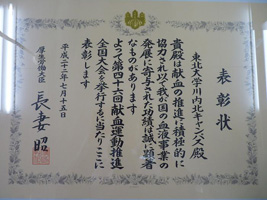 表彰状
東北大学川内北キャンパス殿
貴殿は献血の推進に積極的に
協力され以て我が国の血液事業の
発展に寄与された功績は誠に顕著
なものがあります
よって第四十六回献血運動推進
全国大会を挙行するに当たりここに
表彰します
平成二十二年七月十五日
厚生労働大臣
長妻昭